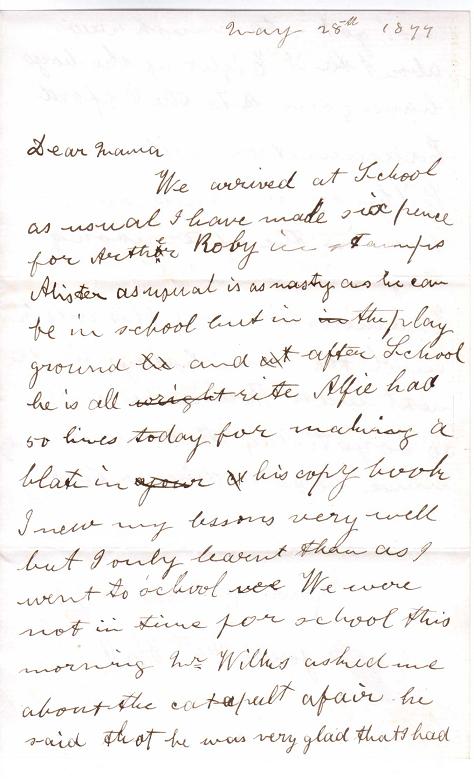 May 28th 1877
Dear Mama
We arrived at School
as usual I have made six pence
for Arthur Roby in stamps
Alister as usual is as nasty as he can
be in school but in in the play
ground he and at after School
he is all wright rite Alfie had
50 lines today for making a
blate in your his copy book
I new my lessons very well
but I only learnt tham as I
went to school wee We were
not in time for school this
morning Mr Wilkes asked me
about the catapult afair he
said that he was very glad thats had